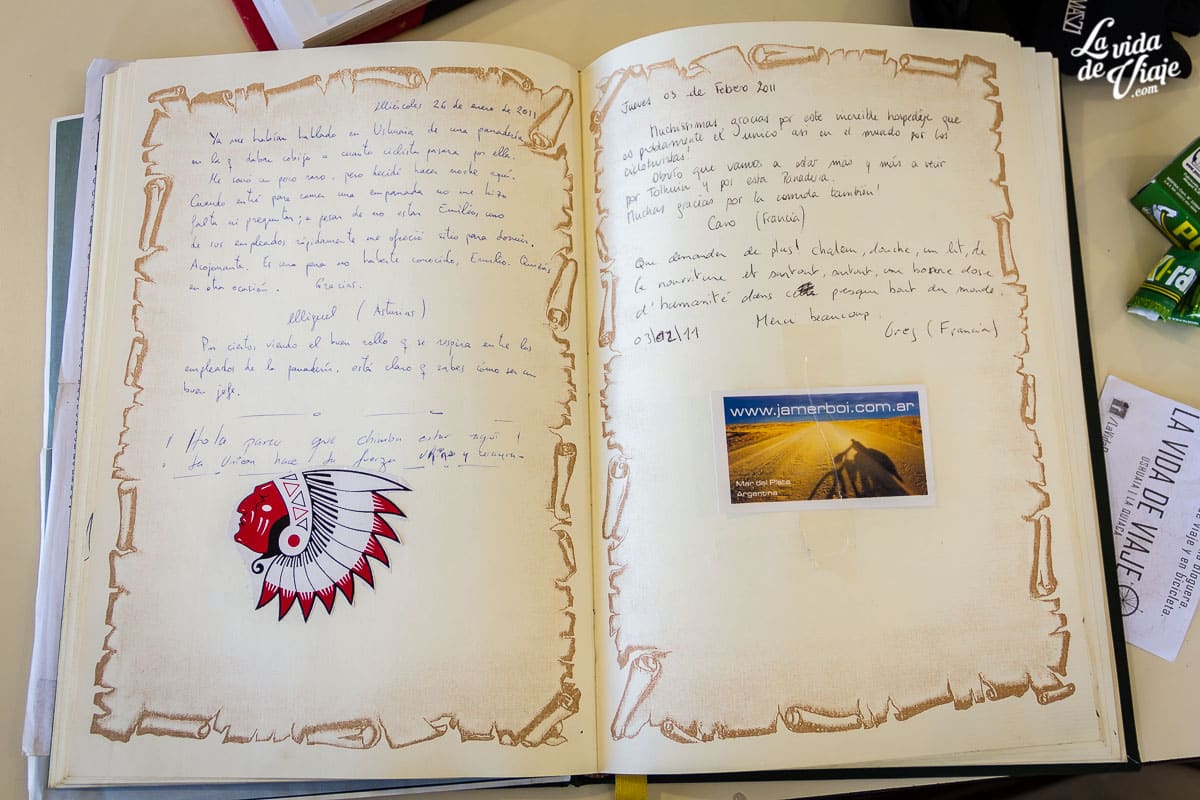 Miércoles 26 de enero de 2011
Ya me habían hablado en Ushuaia de una panadería
en la q daban cobijo a cuanto ciclista pasara por ella.
Me sonó un poco raro, pero decidí hacer noche aquí.
Cuando entré para comer una empanada no me hizo
falta ni preguntar; a pesar de no estar Emilio, uno
de sus empleados rápidamente me ofreció sitio para dormir.
Acojonante. Es una pena no haberte conocido, Emilio. Quizás
en otra ocasión. Gracias.
Miguel (Asturias)
Por cierto, viendo el buen rollo q se respira entre los
empleados de la panadería, está claro q sabes cómo ser un
buen jefe.
¡ Hola parce que chimba estar aquí !
La Union hace la fuerza
Jueves 03 de Febrero 2011
Muchissimas gracias por este increible hospedaje que
es probablamente el unico asi en el mundo por los
cicloturistas!
Obvio que vamos a estar mas y más a venir
por Tolhuin y por esta Panaderia.
Muchas gracias por la comida también!
Caro (Francia)
Que demander de plus! chaleur, douche, un lit, de
la nourriture et surtout, surtout, une bonne dose
d'humanité dans ce presque bout du monde.
Merci beaucoup.
03/02/11
Greg (Francia)
www.jamerboi.com.ar
Mar del Plata
Argentina
La vida
de Viaje
.com
LA VIDA DE VIAJE
USHUAIA | LA QUIACA
de viaje y en bicicleta.